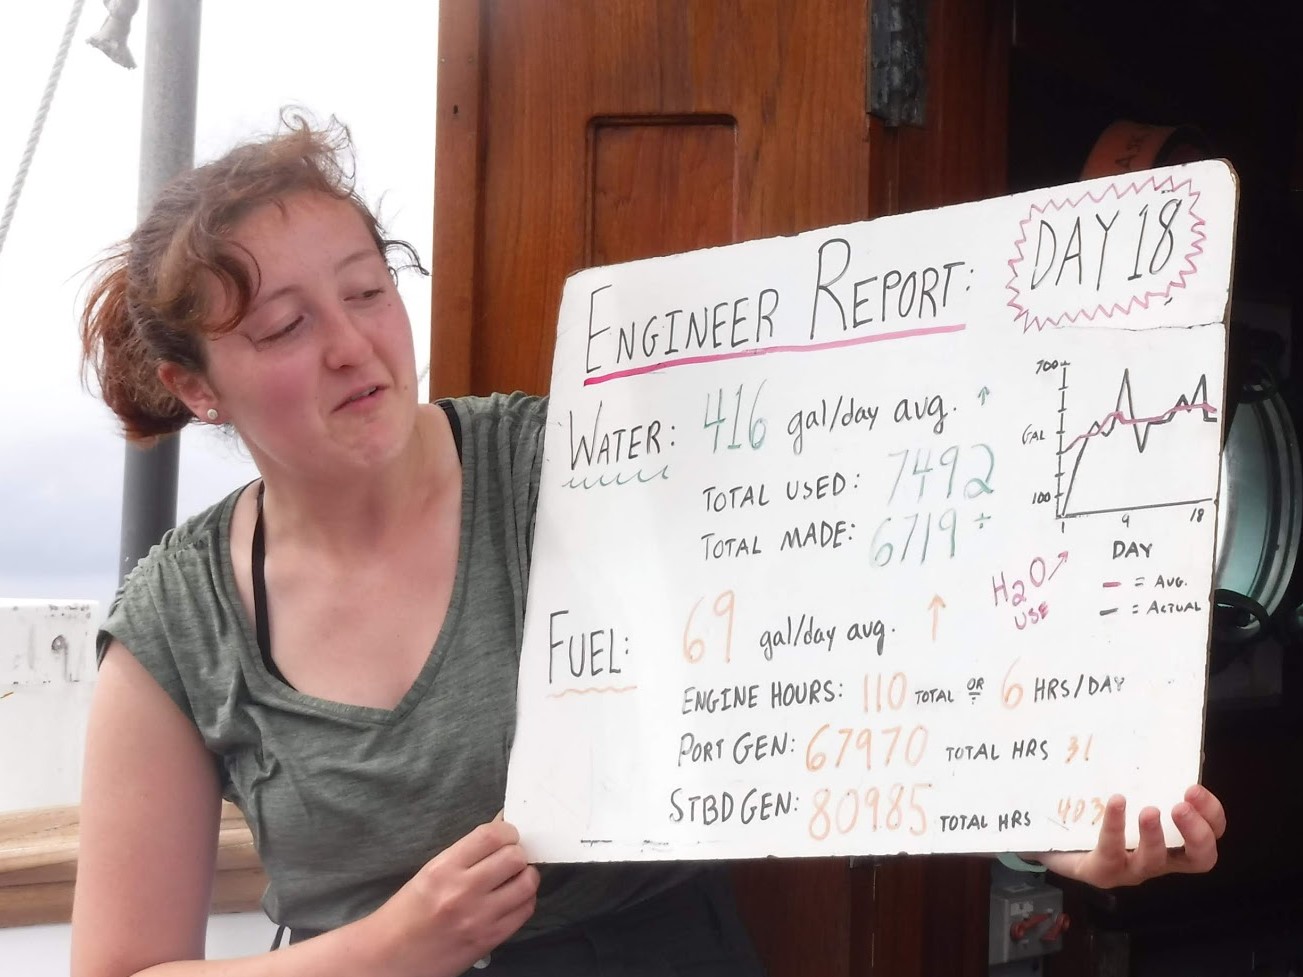 ENGINEER REPORT:
DAY 18
WATER: 416 gal/day avg. ↑
TOTAL USED: 7492
TOTAL MADE: 6719 ÷
700
GAL
100
1 9 18
DAY
H2O USE ↗
— = AVG.
— = ACTUAL
FUEL: 69 gal/day avg. ↑
ENGINE HOURS: 110 TOTAL OR 6 HRS/DAY
PORT GEN: 67970 TOTAL HRS 31
STBD GEN: 80985 TOTAL HRS 403